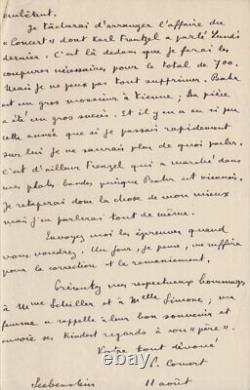 embêtent.
Je tâcherai d'arranger l'affaire du
"Concert" dont Karl Frenzel a parlé Lundi
dernier. C'est là dedans que je ferai les
coupures nécessaires pour le total de 700.
Mais je ne peux pas tout supprimer. Bahr
est un gros monsieur à Vienne ; sa pièce
a été un gros succès. Et il y en a eu si peu
cette année que si je passais rapidement
sur lui je ne saurais plus de quoi parler.
C'est d'ailleurs Frenzel qui a marché dans
mes plates-bandes, puisque Bahr est viennois.
Je retaperai donc la chose de mon mieux
mais j'en parlerai tout de même.
Envoyez moi les épreuves quand
vous voudrez. Un jour, je pense, me suffira
pour la correction et le remaniement.
Présentez mes respectueux hommages
à Mme Schiller et à Melle Simone ; ma
femme se rappelle à leur bon souvenir et
envoie ses kindest regards à votre "père".
Votre tout dévoué
Seebenstein 11 août